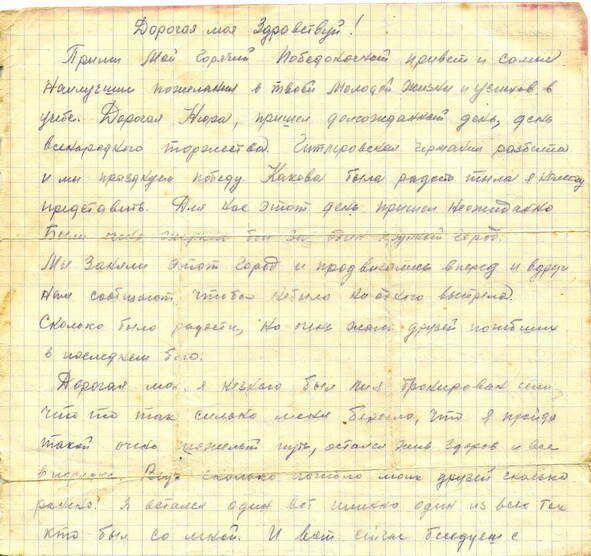 Дорогая моя Здравствуй!
Прими Мой горячий Победоносный привет и самые
Наилучшии пожелания в твоей молодой жизни и успехов в
учебе. Дорогая Нюра, пришел долгожданный день, день
всенародного торжества. Гитлеровская германия разбита
и мы празднуем победу. Какова была радость тыла я немогу
представить. Для нас этот день пришел неожиданно
Были бои за один крупной город.
Мы Заняли этот город и продвигались вперед и вдруг
нам сообщают, чтобы небыло ни одного выстрела.
Сколько было радости, но очень жаль друзей погибших
в последнем бою.
Дорогая моя, я незнаю был ли я бронирован
что то так сильно меня берегло, что я пройдя
такой очень тяжелый путь, остался жив здоров и все
в порядке. Ведь сколько погибло моих друзей сколько
ранено! Я остался один вот именно один из всех тех
кто был со мной. И вот сейчас беседуем с